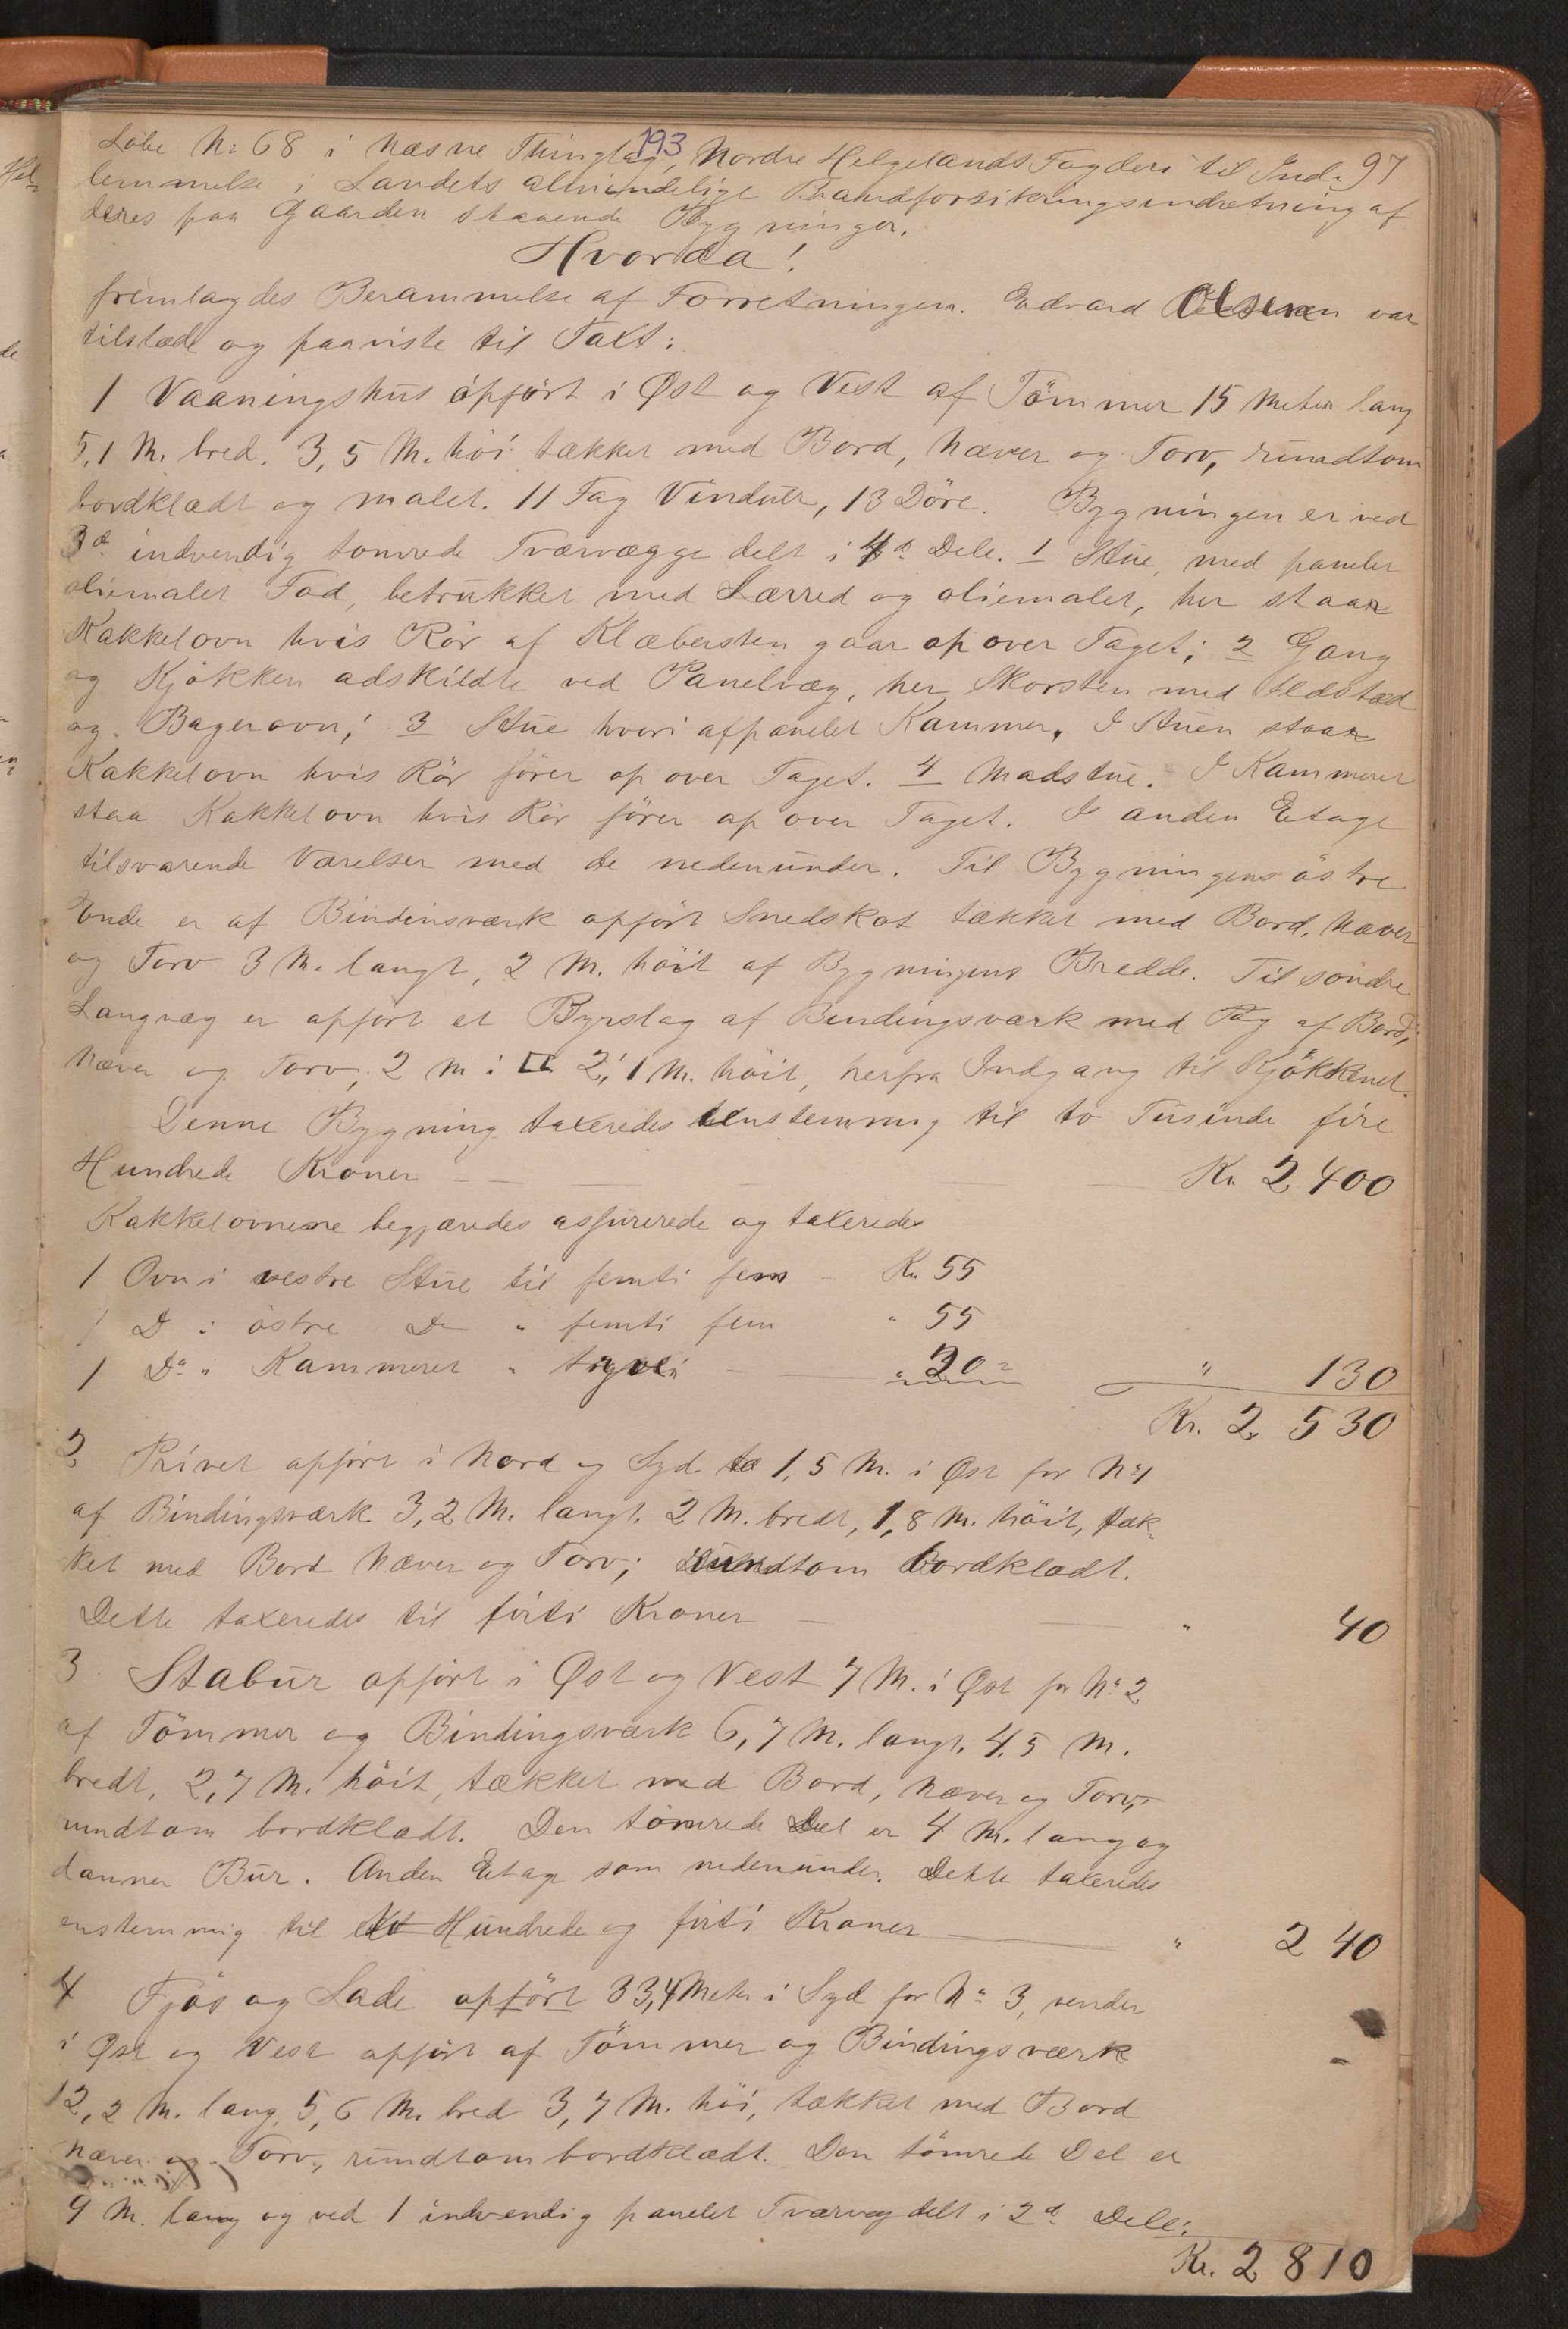 193
97
Løbe No 68 i Næsne Thinglag, Nordre Helgelands Fogderi til Ind-
lemmelse i Landets almindelige Brandforsikringsindretning af
deres paa Gaarden staaende Bygninger.
Hvorda!
fremlagdes Berammelse af Forretningen. Edvard Olsen var
tilstede og paaviste til Taxt:
1 Vaaningshus opført i Øst og Vest af Tömmer 15 Meter lang
5,1 M. bred. 3,5 M. höi tækket med Bord, Næver og Torv, rundtom
bordklædt og malet. 11 Fag Vinduer, 13 Döre. Bygningen er ved
3de indvendig tomrede Tværvægge delt i 4de Dele. 1 Stue, med panelet
oliemalet Tad, betrukket med Lærred og oliemalet, her staar
Kakkelovn hvis Rör af Klæbersten gaar op over Taget; 2 Gang
og Kjökken adskildte ved Panelvæg, her Skorsten med Ildsted
og Bagerovn; 3 Stue hvori afpanelet Kammer. I Stuen staar
Kakkelovn hvis Rör förer op over Taget. 4 Madstue. I Kammeret
staa Kakkelovn hvis Rör förer op over Taget. I anden Etage
tilsvarende Værelser med de nedenunder. Til Bygningens östre
Ende er af Bindinsværk opfört Snedskot tækket med Bord, Næver
og Torv 3 M. langt, 2 M. höit af Bygningens Bredde. Til söndre
Langvæg er opfört et Byrslag af Bindingsværk med Tag af Bord,
Næver og Torv, 2 M i □ 2,1 M. höit, herfra Indgang til Kjökkenet.
Denne Bygning taxeredes enstemmig til to Tusinde fire
Hundrede Kroner Kr. 2 400
Kakkelovnene begjæredes assurerede og taxeredes
1 Ovn i vestre Stue til femti fem Kr 55
1 Do i östre Do " femti fem " 55
1 Do i Kammeret " tyve " 20 " 130
Kr. 2 530
2 Privet opfört i Nord og Syd 1,5 M. i Øst for No 1
af Bindingsværk 3,2 M. langt. 2 M. bredt, 1,8 M. höit, tæk-
ket med Bord Næver og Torv; rundtom bordklædt.
Dette taxeredes til firti Kroner " 40
3. Stabur opfört i Øst og Vest 7 M. i Øst for No 2
af Tömmer og Bindingsværk 6,7 M. langt. 4,5 M.
bredt, 2,7 M. höit, tækket med Bord, Næver og Torv,
rundtom bordklædt. Den tömrede Del er 4 M. lang og
danner Bur. Anden Etage som nedenunder. Dette taxeredes
enstemmig til Hundrede og firti Kroner " 240
4 Fjös og Lade opfört 33,4 Meter i Syd for No 3, vender
i Øst og Vest opfört af Tömmer og Bindingsværk
12,2 M. lang, 5,6 M. bred 3,7 M. höi, tækket med Bord
Næver og Torv, rundtom bordklædt. Den tömrede Del er
9 M. lang og ved 1 indvendig panelet Tværvæg delt i 2de Dele:
Kr. 2 810